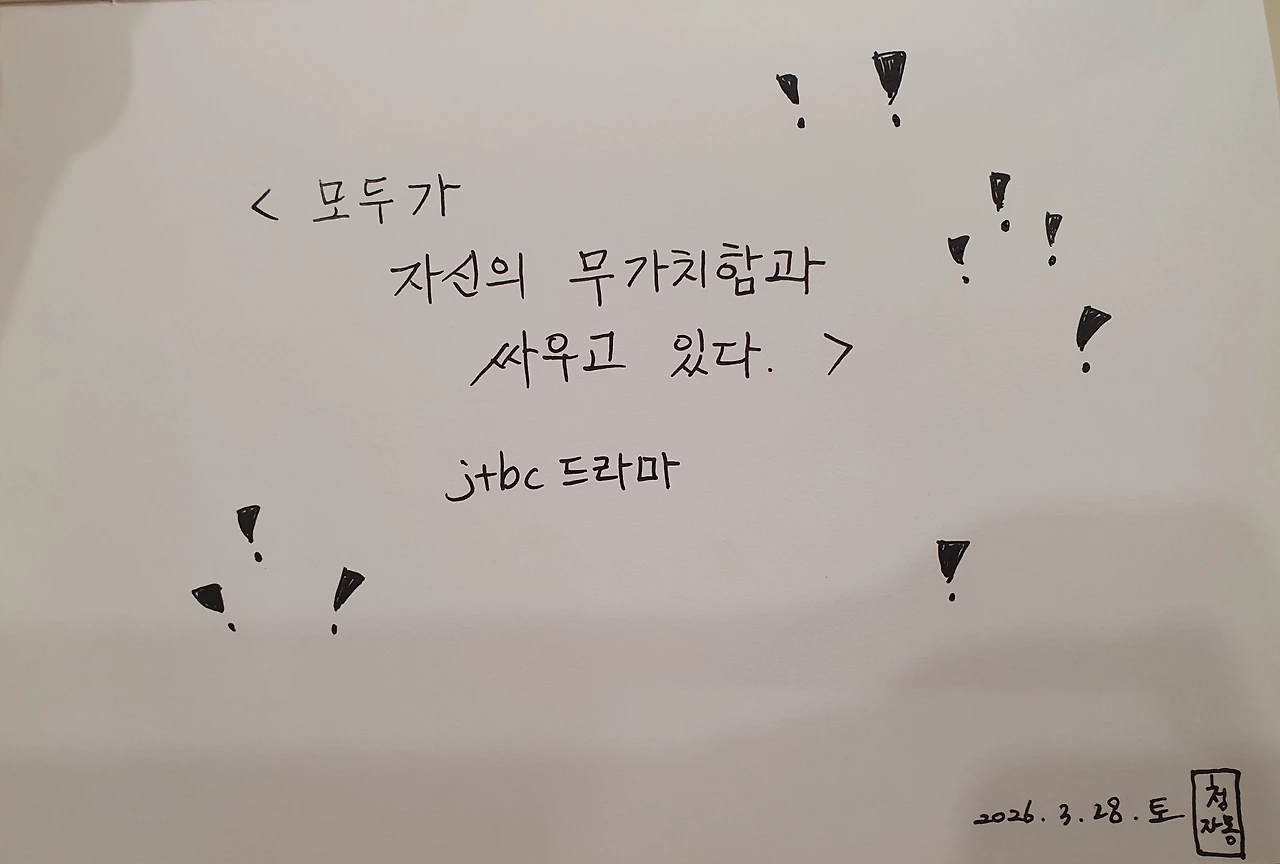 < 모두가
자신의 무가치함과
싸우고 있다. >
jtbc 드라마
2026. 3. 28. 토
청
자몽